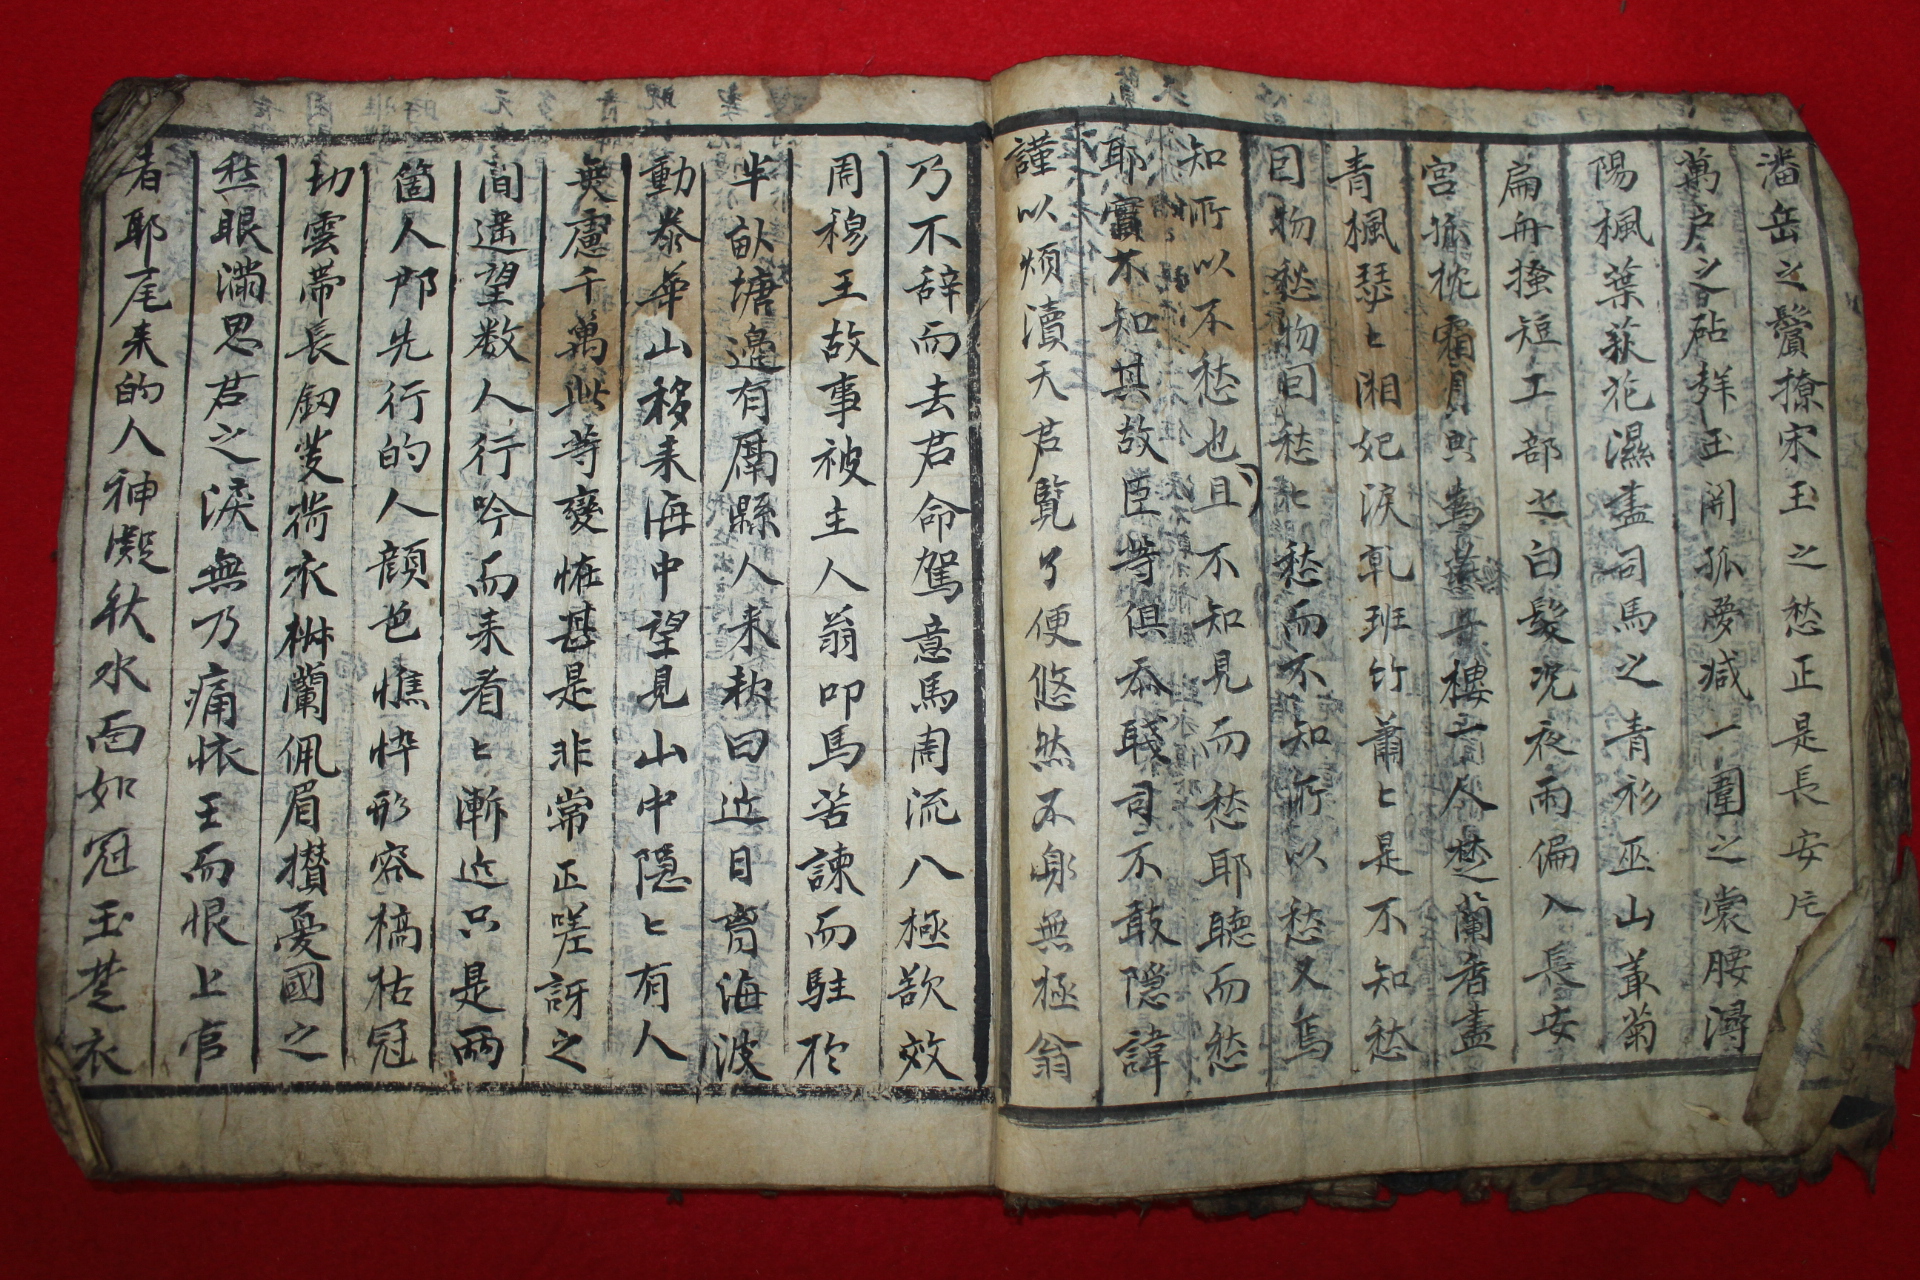 潘岳之鬢撩宋玉之愁正是長安
萬戶之砧群玉開孤夢減一圍之裳腰潯
陽楓葉荻花濕盡司馬之青衫巫山叢菊
扁舟搔短工部之白髮況夜雨偏入長安
宮孤枕霜月燕子樓二人楚蘭香盡
青楓瑟〻湘妃淚乾班竹蕭〻是不知愁
目物愁物曰愁〻愁而不知所以愁又焉
知所以不愁也且不知見而愁耶聽而愁
耶實不知其故臣等俱忝職司不敢隱諱
謹以煩瀆天君覧了便悠然不無極翁
乃不辞而去君命駕意馬周流八極欲效
周穆王故事被主人翁叩馬苦諫而駐於
半畝塘邊有鬲縣人來報曰近日胷海波
動泰華山移来海中望見山中隱〻有人
無慮千萬此等變恠甚是非常正嗟訝之
間遥望数人行吟而来看〻漸近只是兩
箇人那先行的人顏色憔悴形容槁枯冠
切雲帶長劒芰荷衣椒蘭佩眉攅憂國之
愁眼滿思君之淚無乃痛懷王而恨上官
者耶尾来的人神凝秋水面如冠玉楚衣